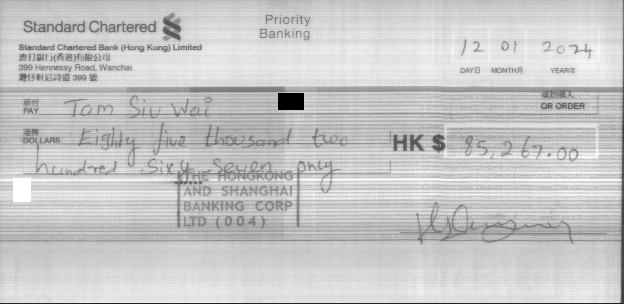 Standard Chartered
Priority
Banking
Standard Chartered Bank (Hong Kong) Limited
渣打銀行(香港)有限公司
399 Hennessy Road, Wanchai
灣仔軒尼詩道 399 號
12 01 2024
DAY日 MONTH月 YEAR年
祈付
PAY
Tam Siu Wai
或持票人
OR ORDER
港幣
DOLLARS
Eighty five thousand two
hundred Sixty Seven only
HK$ 85,267.00
THE HONGKONG
AND SHANGHAI
BANKING CORP
LTD (004)